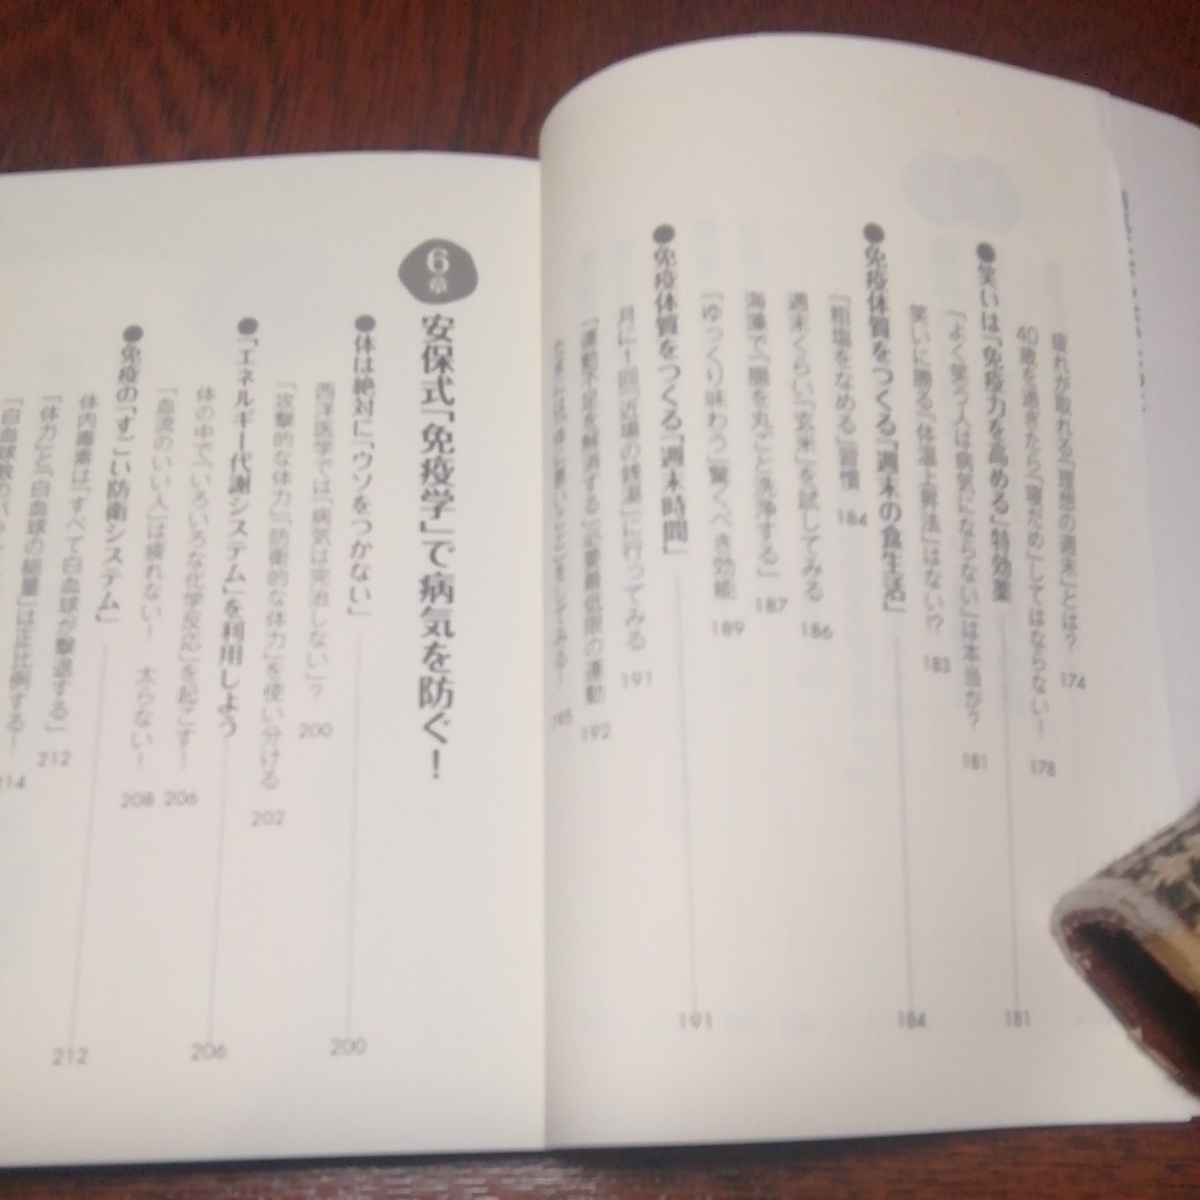 疲れが取れる「理想の週末」とは? 174
40歳を過ぎたら「寝だめ」してはならない! 178
●笑いは「免疫力を高める」特効薬 181
「よく笑う人は病気にならない」は本当か? 181
笑いに勝る「体温上昇法」はない!? 183
●免疫体質をつくる「週末の食生活」 184
「粗塩をなめる」習慣 184
週末くらい「玄米」を試してみる 186
海藻で「腸を丸ごと洗浄する」 187
「ゆっくり味わう」驚くべき効能 189
●免疫体質をつくる「週末時間」 191
月に1回「近場の銭湯」に行ってみる 191
「運動不足を解消する」必要最低限の運動 192
たまには「体に悪いこと」をしてみる! 195
6章 安保式「免疫学」で病気を防ぐ!
●体は絶対に「ウソをつかない」 200
西洋医学では「病気は完治しない」? 200
「攻撃的な体力」「防衛的な体力」を使い分ける 202
●「エネルギー代謝システム」を利用しよう 206
体の中で「いろいろな化学反応」を起こす! 206
「血流のいい人」は疲れない! 太らない! 208
●免疫の「すごい防衛システム」 212
体内毒素は「すべて白血球が撃退する」 212
「体力」と「白血球の総量」は正比例する! 214
「白血球数のバラ